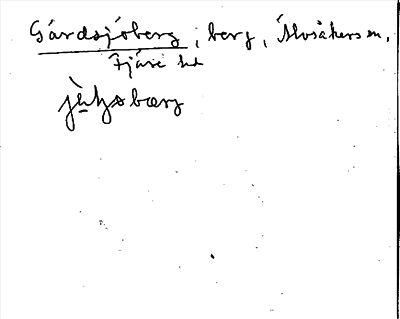 Gårdsjöberg, berg, Älvsåkers sn,
Fjäre hd